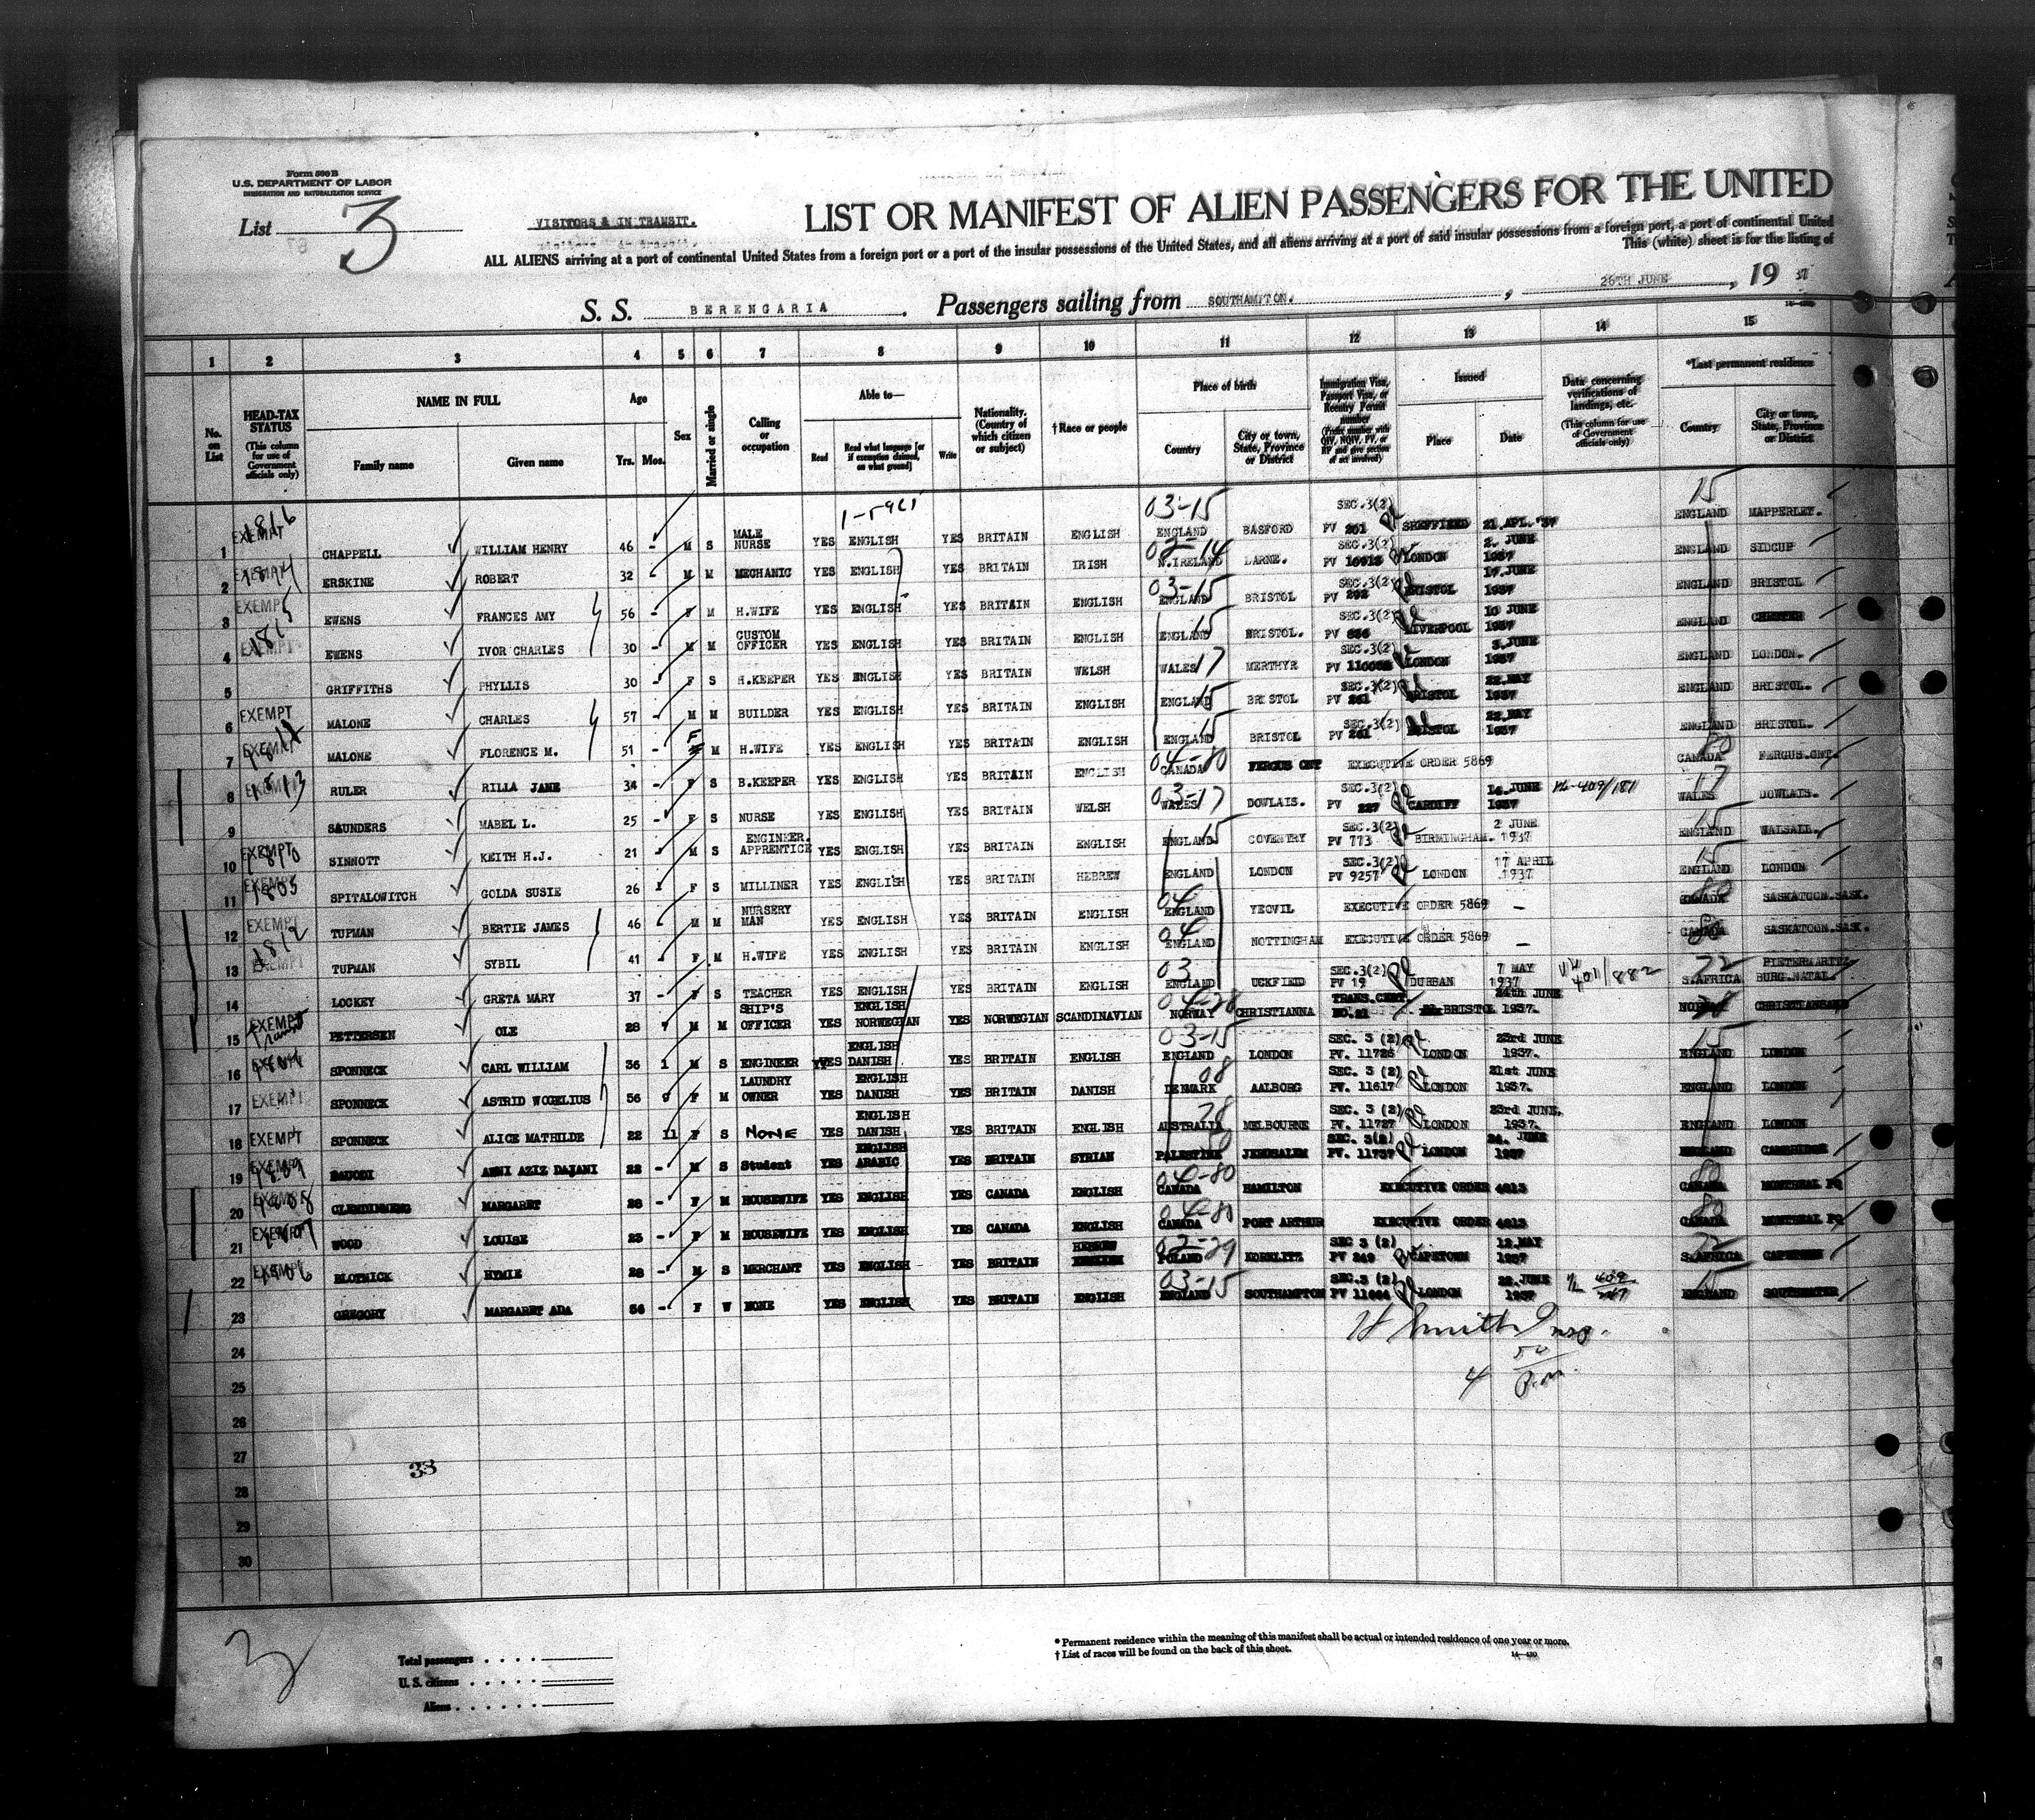 Form 500 B
U.S. DEPARTMENT OF LABOR
IMMIGRATION AND NATURALIZATION SERVICE
List 3
VISITORS & IN TRANSIT.
LIST OR MANIFEST OF ALIEN PASSENGERS FOR THE UNITED
ALL ALIENS arriving at a port of continental United States from a foreign port or a port of the insular possessions of the United States, and all aliens arriving at a port of said insular possessions from a foreign port, a port of continental United
This (white) sheet is for the listing of
S. S. BERENGARIA. Passengers sailing from SOUTHAMPTON. , 26TH JUNE , 19 37
1 2 3 4 5 6 7 8 9 10 11 12 13 14 15
No. on List
HEAD-TAX STATUS (This column for use of Government officials only)
NAME IN FULL Family name Given name
Age Yrs. Mos.
Sex
Married or single
Calling or occupation
Able to— Read Read what language [or if exemption claimed, on what ground] Write
Nationality. (Country of which citizen or subject)
†Race or people
Place of birth Country City or town, State, Province or District
Immigration Visa, Passport Visa, or Reentry Permit number (Prefix number with QIV, NQIV, PV, or RP and give section of act involved)
Issued Place Date
Data concerning verifications of landings, etc. (This column for use of Government officials only)
*Last permanent residence Country City or town, State, Province or District
1 EXEMPT CHAPPELL WILLIAM HENRY 46 - M S MALE NURSE YES ENGLISH YES BRITAIN ENGLISH 03-15 ENGLAND BASFORD SEC.3(2) PV 261 SHEFFIELD 21 APL. '37 15 ENGLAND MAPPERLEY.
2 ERSKINE ROBERT 32 M M MECHANIC YES ENGLISH YES BRITAIN IRISH N.IRELAND LARNE. SEC.3(2) LONDON 2. JUNE 1937 ENGLAND SIDCUP
3 EXEMPT EWENS FRANCES AMY 56 - F M H.WIFE YES ENGLISH YES BRITAIN ENGLISH 03-15 ENGLAND BRISTOL SEC.3(2) PV 292 BRISTOL 17.JUNE 1937 ENGLAND BRISTOL
4 EXEMPT EWENS IVOR CHARLES 30 - M M CUSTOM OFFICER YES ENGLISH YES BRITAIN ENGLISH 15 ENGLAND BRISTOL. SEC.3(2) LIVERPOOL 10 JUNE 1937 ENGLAND CHESTER
5 GRIFFITHS PHYLLIS 30 - F S H.KEEPER YES ENGLISH YES BRITAIN WELSH WALES 17 MERTHYR SEC.3(2) LONDON JUNE 1937 ENGLAND LONDON.
6 EXEMPT MALONE CHARLES 57 - M M BUILDER YES ENGLISH YES BRITAIN ENGLISH ENGLAND 15 BRISTOL SEC.3(2) PV 261 BRISTOL 22.MAY 1937 ENGLAND BRISTOL.
7 EXEMPT MALONE FLORENCE M. 51 - F M H.WIFE YES ENGLISH YES BRITAIN ENGLISH ENGLAND 15 BRISTOL SEC.3(2) PV 261 BRISTOL 22.MAY 1937 ENGLAND BRISTOL.
8 EXEMPT RULER RILLA JANE 34 - F S B.KEEPER YES ENGLISH YES BRITAIN ENGLISH 04-80 CANADA FERGUS ONT EXECUTIVE ORDER 5869 80 CANADA FERGUS.ONT.
9 SAUNDERS MABEL L. 25 F S NURSE YES ENGLISH YES BRITAIN WELSH 03-17 WALES DOWLAIS. SEC.3(2) PV 227 CARDIFF 14.JUNE 1937 409/181 17 WALES DOWLAIS.
10 EXEMPT SINNOTT KEITH H.J. 21 M S ENGINEER. APPRENTICE YES ENGLISH YES BRITAIN ENGLISH ENGLAND 15 COVENTRY SEC.3(2) PV 773 BIRMINGHAM. 2 JUNE 1937 15 ENGLAND WALSALL.
11 EXEMPT SPITALOWITCH GOLDA SUSIE 26 F S MILLINER YES ENGLISH YES BRITAIN HEBREW ENGLAND LONDON SEC.3(2) PV 9257 LONDON 17 APRIL 1937 15 ENGLAND LONDON
12 EXEMPT TUPMAN BERTIE JAMES 46 M M NURSERY MAN YES ENGLISH YES BRITAIN ENGLISH 04 ENGLAND YEOVIL EXECUTIVE ORDER 5869 — 80 CANADA SASKATOON.SASK.
13 EXEMPT TUPMAN SYBIL 41 F M H.WIFE YES ENGLISH YES BRITAIN ENGLISH 04 ENGLAND NOTTINGHAM EXECUTIVE ORDER 5869 — 80 CANADA SASKATOON.SASK.
14 LOCKEY GRETA MARY 37 - F S TEACHER YES ENGLISH YES BRITAIN ENGLISH 03 ENGLAND UCKFIELD SEC.3(2) PV 19 DURBAN 7 MAY 1937 401/882 72 S.AFRICA PIETERMARITZ BURG.NATAL
15 EXEMPT PETTERSEN OLE 28 M M SHIP'S OFFICER YES ENGLISH NORWEGIAN YES NORWEGIAN SCANDINAVIAN NORWAY CHRISTIANNA TRANS.CERT NO.21 BRISTOL 24th JUNE 1937. NORWAY CHRISTIANSAND
16 EXEMPT SPONNECK CARL WILLIAM 36 1 M S ENGINEER YES ENGLISH DANISH YES BRITAIN ENGLISH 03-15 ENGLAND LONDON SEC. 3 (2) PV. 11726 LONDON 23rd JUNE 1937. 15 ENGLAND LONDON
17 EXEMPT SPONNECK ASTRID WOGELIUS 56 F M LAUNDRY OWNER YES ENGLISH DANISH YES BRITAIN DANISH 08 DENMARK AALBORG SEC. 3 (2) PV. 11617 LONDON 21st JUNE 1937. ENGLAND LONDON
18 EXEMPT SPONNECK ALICE MATHILDE 22 11 F S NONE YES ENGLISH DANISH YES BRITAIN ENGLISH AUSTRALIA MELBOURNE SEC. 3 (2) PV. 11727 LONDON 23rd JUNE. 1937. ENGLAND LONDON
19 EXEMPT DAUODI AZIZ DAJANI 22 - M S Student YES ENGLISH ARABIC YES BRITAIN SYRIAN PALESTINE JERUSALEM SEC. 3(2) PV. 11737 LONDON 24. JUNE 1937 ENGLAND CAMBRIDGE
20 EXEMPT CLENDINNENG MARGARET 28 - F M HOUSEWIFE YES ENGLISH YES CANADA ENGLISH 04-80 CANADA HAMILTON EXECUTIVE ORDER 4813 80 CANADA MONTREAL PQ
21 EXEMPT WOOD LOUISE 25 - F M HOUSEWIFE YES ENGLISH YES CANADA ENGLISH 04-80 CANADA PORT ARTHUR EXECUTIVE ORDER 4813 80 CANADA MONTREAL PQ
22 EXEMPT BLOTNICK HYMIE 28 - M S MERCHANT YES ENGLISH YES BRITAIN HEBREW POLAND SEC 3 (2) PV 249 CAPETOWN 12.MAY 1937 72 S.AFRICA CAPETOWN
23 GREGORY MARGARET ADA 56 - F W NONE YES ENGLISH YES BRITAIN ENGLISH 03-15 ENGLAND SOUTHAMPTON SEC.3 (2) LONDON 22.JUNE 1937 15 ENGLAND SOUTHWATER
H Smith Insp.
24
4 50 P.M.
25
26
27
33
28
29
30
3
Total passengers . . . .
U. S. citizens . . . . .
Aliens . . . . . .
* Permanent residence within the meaning of this manifest shall be actual or intended residence of one year or more.
† List of races will be found on the back of this sheet.